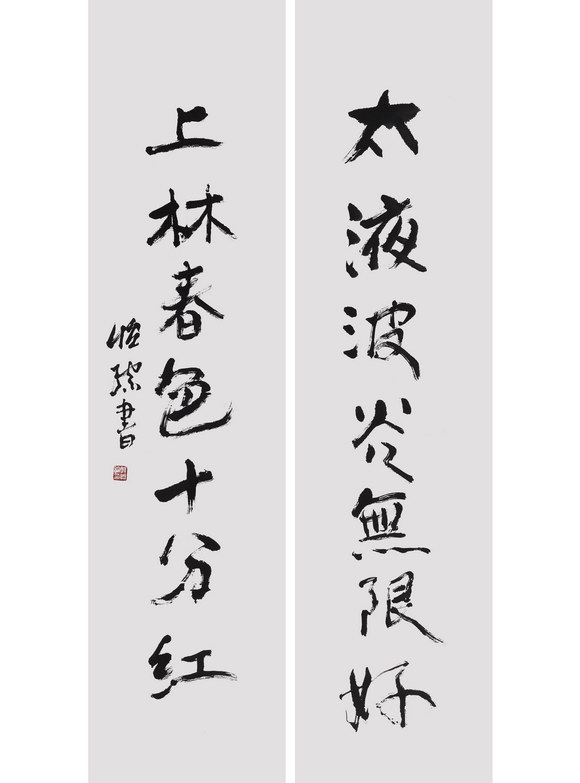 太液波光無限好
上林春色十分紅
書